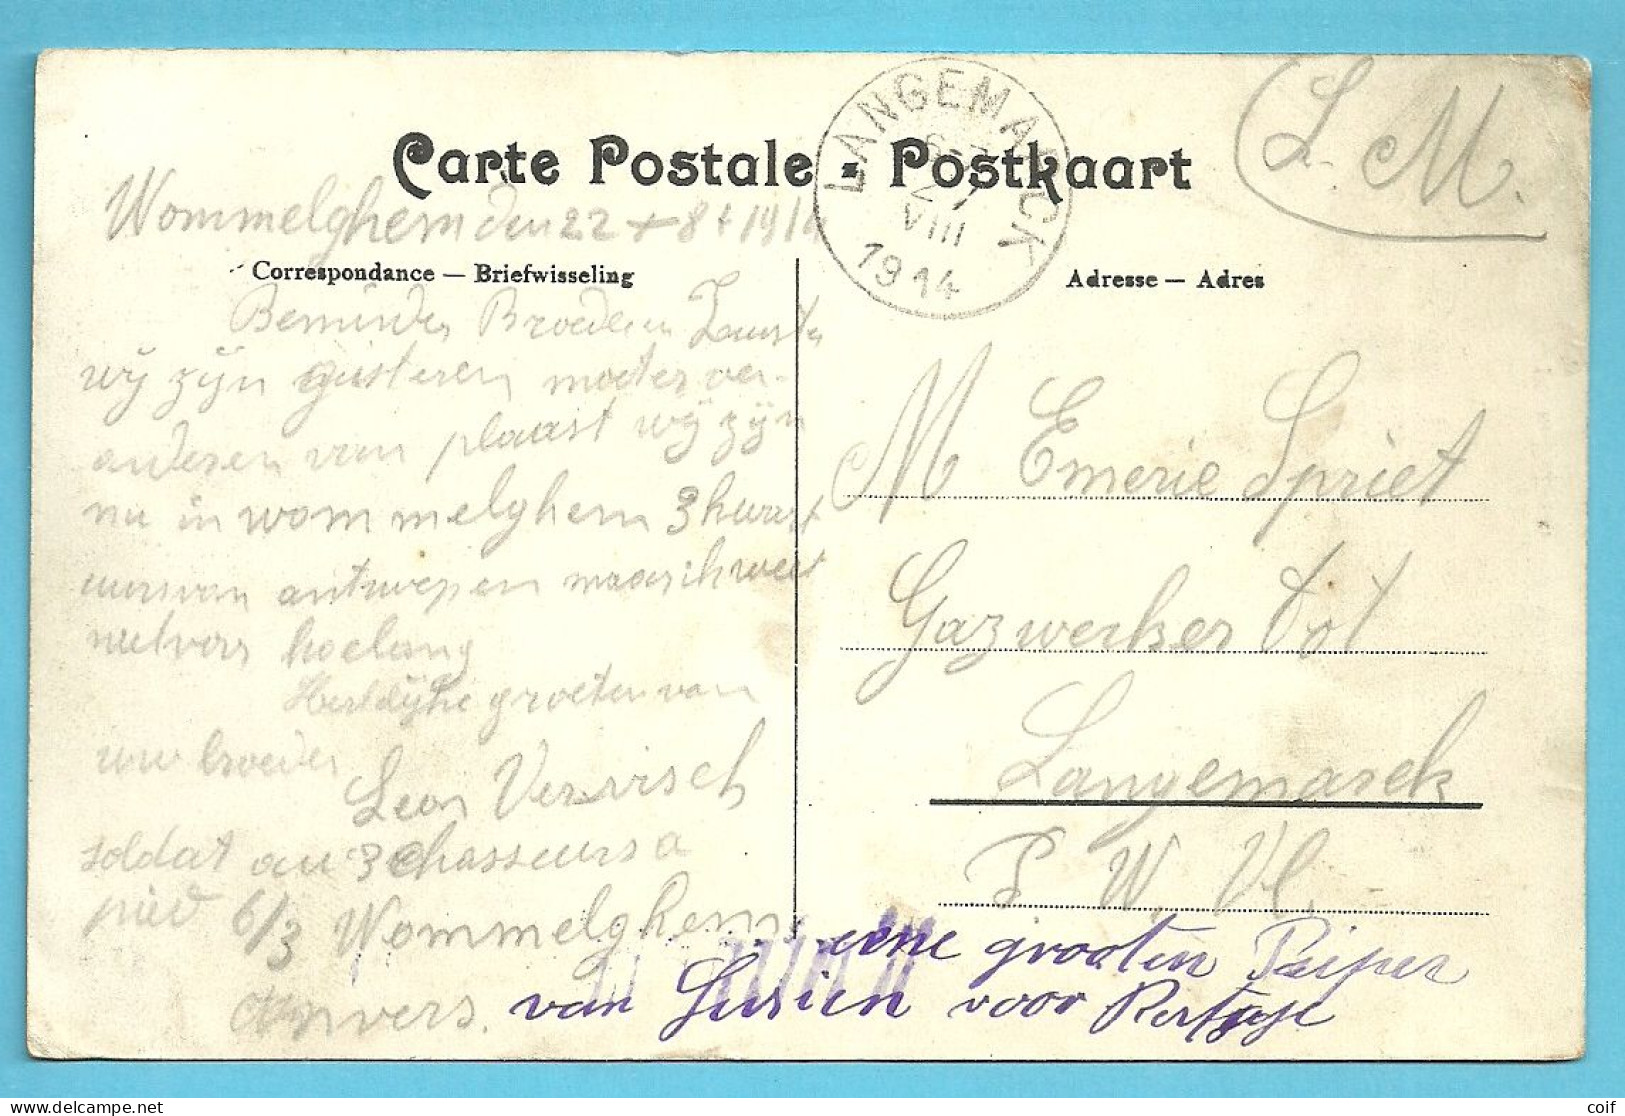 Carte Postale - Postkaart
LANGEMARCK
VIII
1914
L. M.
Wommelghem den 22 + 8 + 1914
Correspondance — Briefwisseling
Adresse — Adres
Beminden Broeder en Zuster
wij zijn gisteren moeten ver-
anderen van plaast wij zijn
nu in wommelghem 3 kwart
uurs van antwerpen maar ik weet
niet voor hoelang
Hertelijke groeten van
uw broeder
Leon Vervisch
soldat au 3 chasseurs a
pied 6/3 Wommelghem
Anvers.
M Emerie Spriet
Gazwerker tot
Langemarck
P W. Vl.
eene grooten
van voor
Delcampe.net
coif